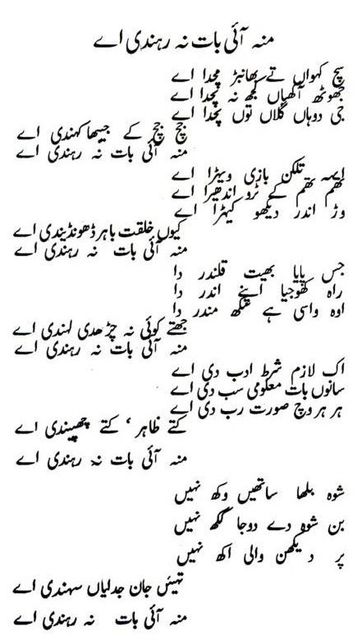 منہ آئی بات نہ رہندی اے
سچ کہواں تے بھانبڑ مچدا اے
جھوٹھ آکھیاں کجھ نہ بچدا اے
جی دوہاں گلاں توں جچدا اے
جچ جچ کے جیبھا کہندی اے
منہ آئی بات نہ رہندی اے
ایہہ تلکن بازی ویہڑا اے
تھم تھم کے ٹرو اندھیرا اے
وڑ اندر دیکھو کیہڑا اے
کیوں خلقت باہر ڈھونڈیندی اے
منہ آئی بات نہ رہندی اے
جس پایا بھیت قلندر دا
راہ کھوجیا اپنے اندر دا
اوہ واسی ہے سکھ مندر دا
جتھے کوئی نہ چڑھدی لہندی اے
منہ آئی بات نہ رہندی اے
اک لازم شرط ادب دی اے
سانوں بات معلومی سب دی اے
ہر ہر وچ صورت رب دی اے
کتے ظاہر، کتے چھپیندی اے
منہ آئی بات نہ رہندی اے
شوہ بلھا ساتھیں وکھ نہیں
بن شوہ دے دوجا ککھ نہیں
پر دیکھن والی اکھ نہیں
تہیئں جان جدلیاں سہندی اے
منہ آئی بات نہ رہندی اے